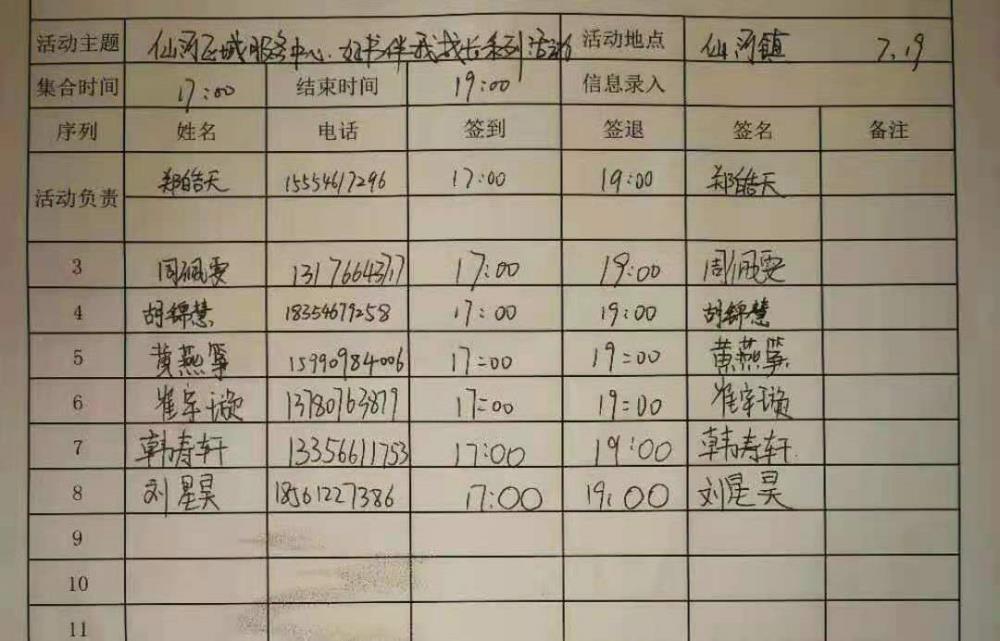 活动主题 仙河区城服务中心.好书伴我成长系列活动 活动地点 仙河镇 7.19
集合时间 17:00 结束时间 19:00 信息录入
序列 姓名 电话 签到 签退 签名 备注
活动负责 郑皓天 15554617296 17:00 19:00 郑皓天
3 周佩雯 13176643717 17:00 19:00 周佩雯
4 胡锦慧 18354679258 17:00 19:00 胡锦慧
5 黄燕筝 15990984006 17:00 19:00 黄燕筝
6 崔宇璇 13780763879 17:00 19:00 崔宇璇
7 韩寿轩 13356611753 17:00 19:00 韩寿轩
8 刘星昊 18561227386 17:00 19:00 刘星昊
9
10
11